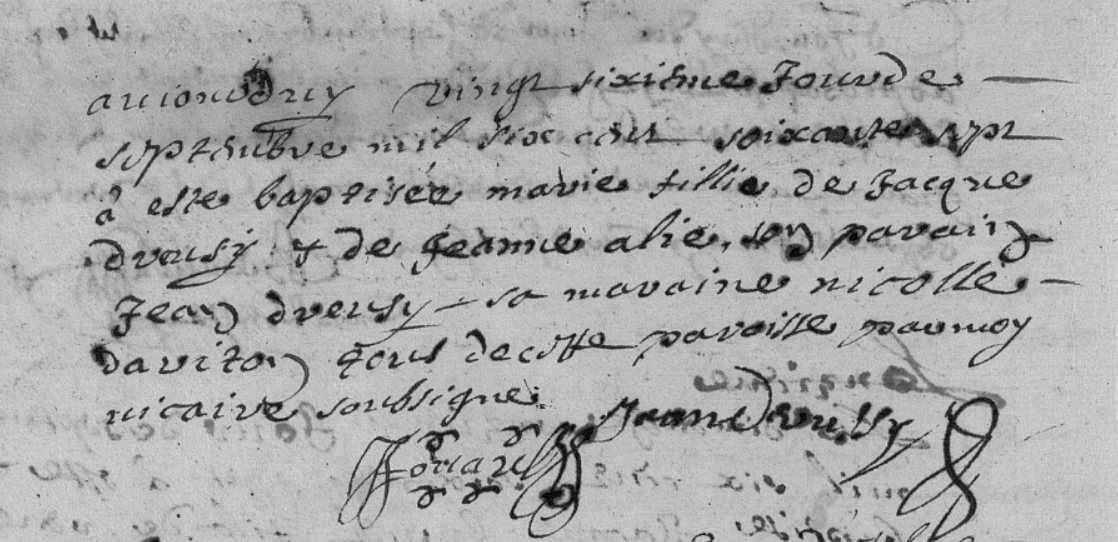 aujourduy vingt sixiéme Jour de
septembre mil six cent soixante sept
à este baptisée marie fillie de Jacque
dreusy & de Jeanne alie, son parain
Jean dreusy sa maraine nicolle
daviton tous de cette paroisse par moy
vicaire soubsigne